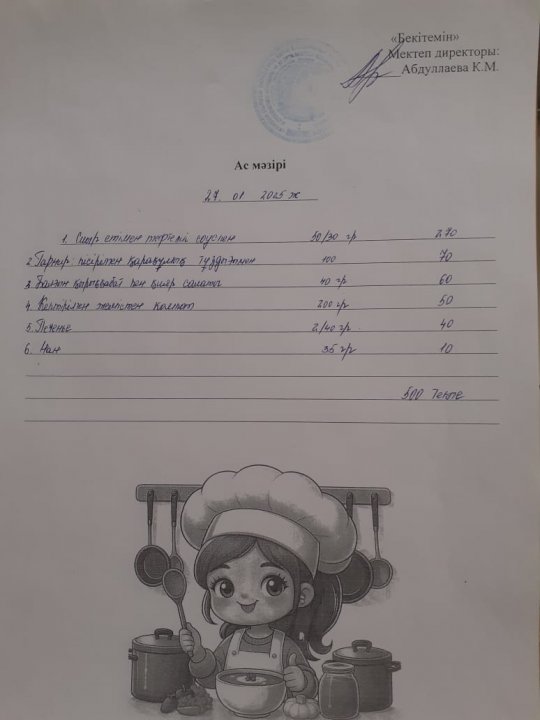 «Бекітемін»
Мектеп директоры:
Абдуллаева К.М.
Ас мәзірі
27. 01 2025 ж
1. Сиыр етімен тефтели соуспен 50/30 гр 270
2 Гарнир: пісірілген қарақұмық тұздықпен 100 70
3 қызылша пен салаты 40 гр 60
4. Кептірілген жемістен компот 200 гр 50
5. Печенье 2/40 гр 40
6. Нан 35 гр 10
500 теңге